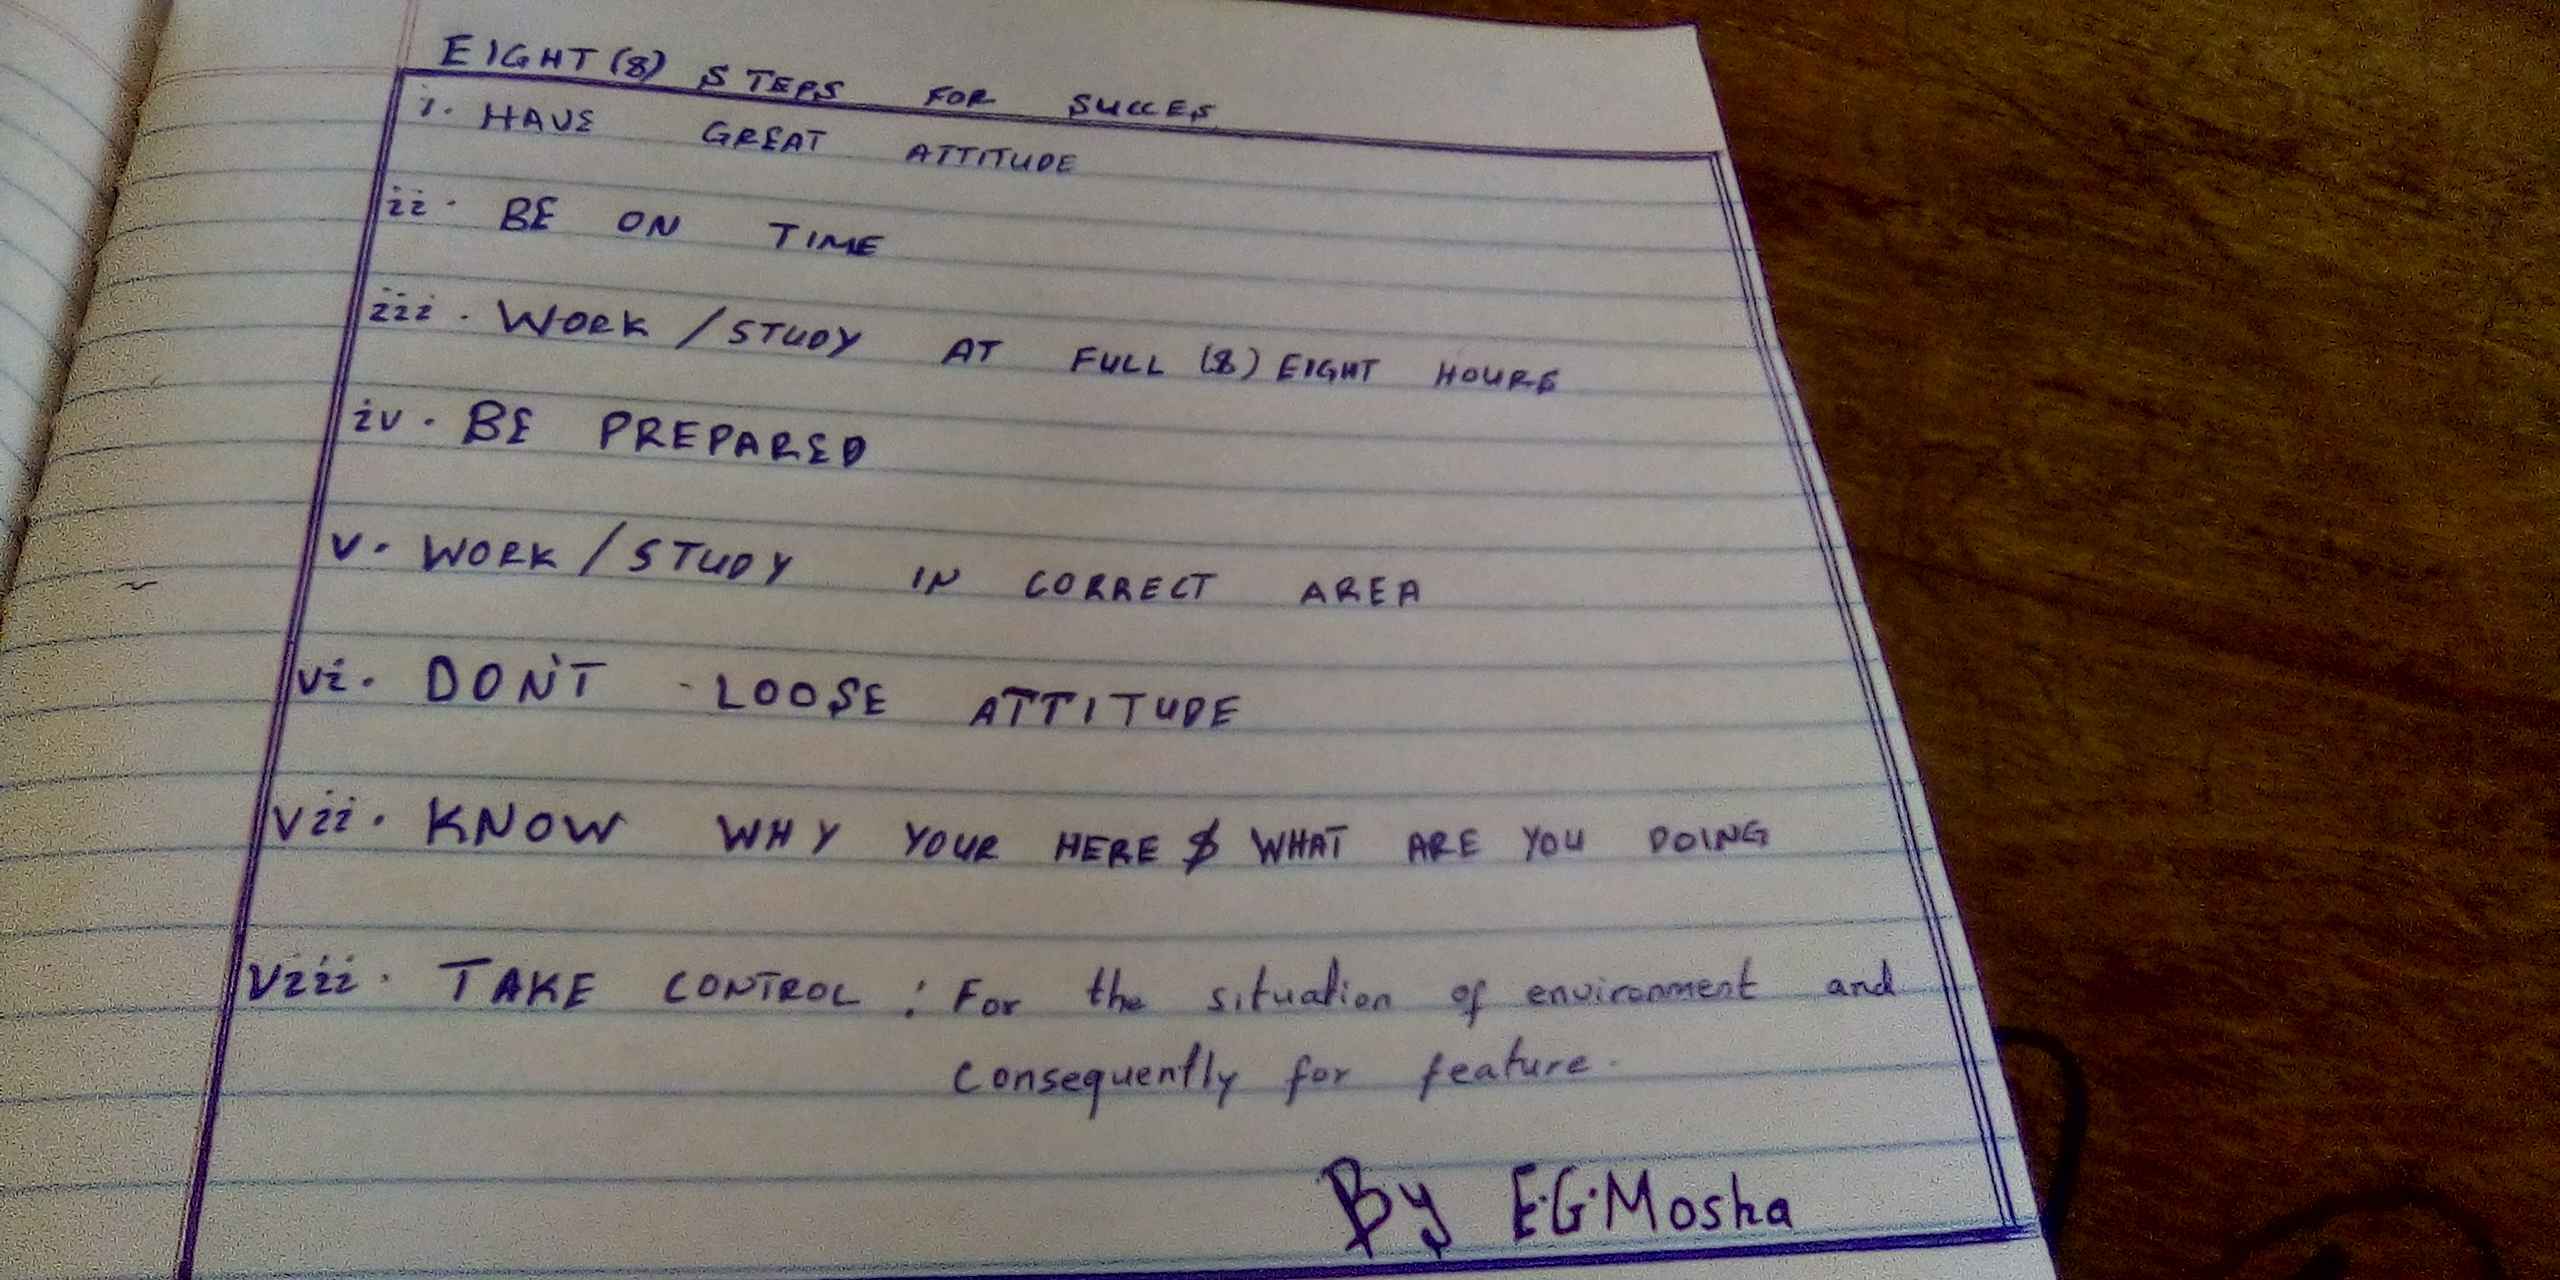 EIGHT (8) STEPS FOR SUCCES
i. HAVE GREAT ATTITUDE
ii. BE ON TIME
iii. WORK / STUDY AT FULL (8) EIGHT HOURS
iv. BE PREPARED
v. WORK / STUDY IN CORRECT AREA
vi. DON'T LOOSE ATTITUDE
vii. KNOW WHY YOUR HERE & WHAT ARE YOU DOING
viii. TAKE CONTROL : For the situation of environment and
consequently for feature.
By E.G.Mosha